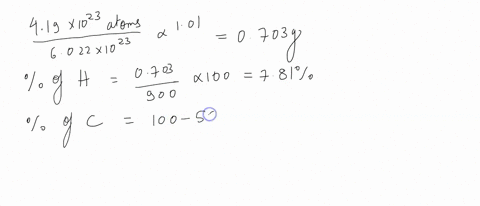 4.19 × 10^23 atoms / 6.022 × 10^23 × 1.01 = 0.703g
% of H = 0.703 / 900 × 100 = 7.81%
% of C = 100 - 5